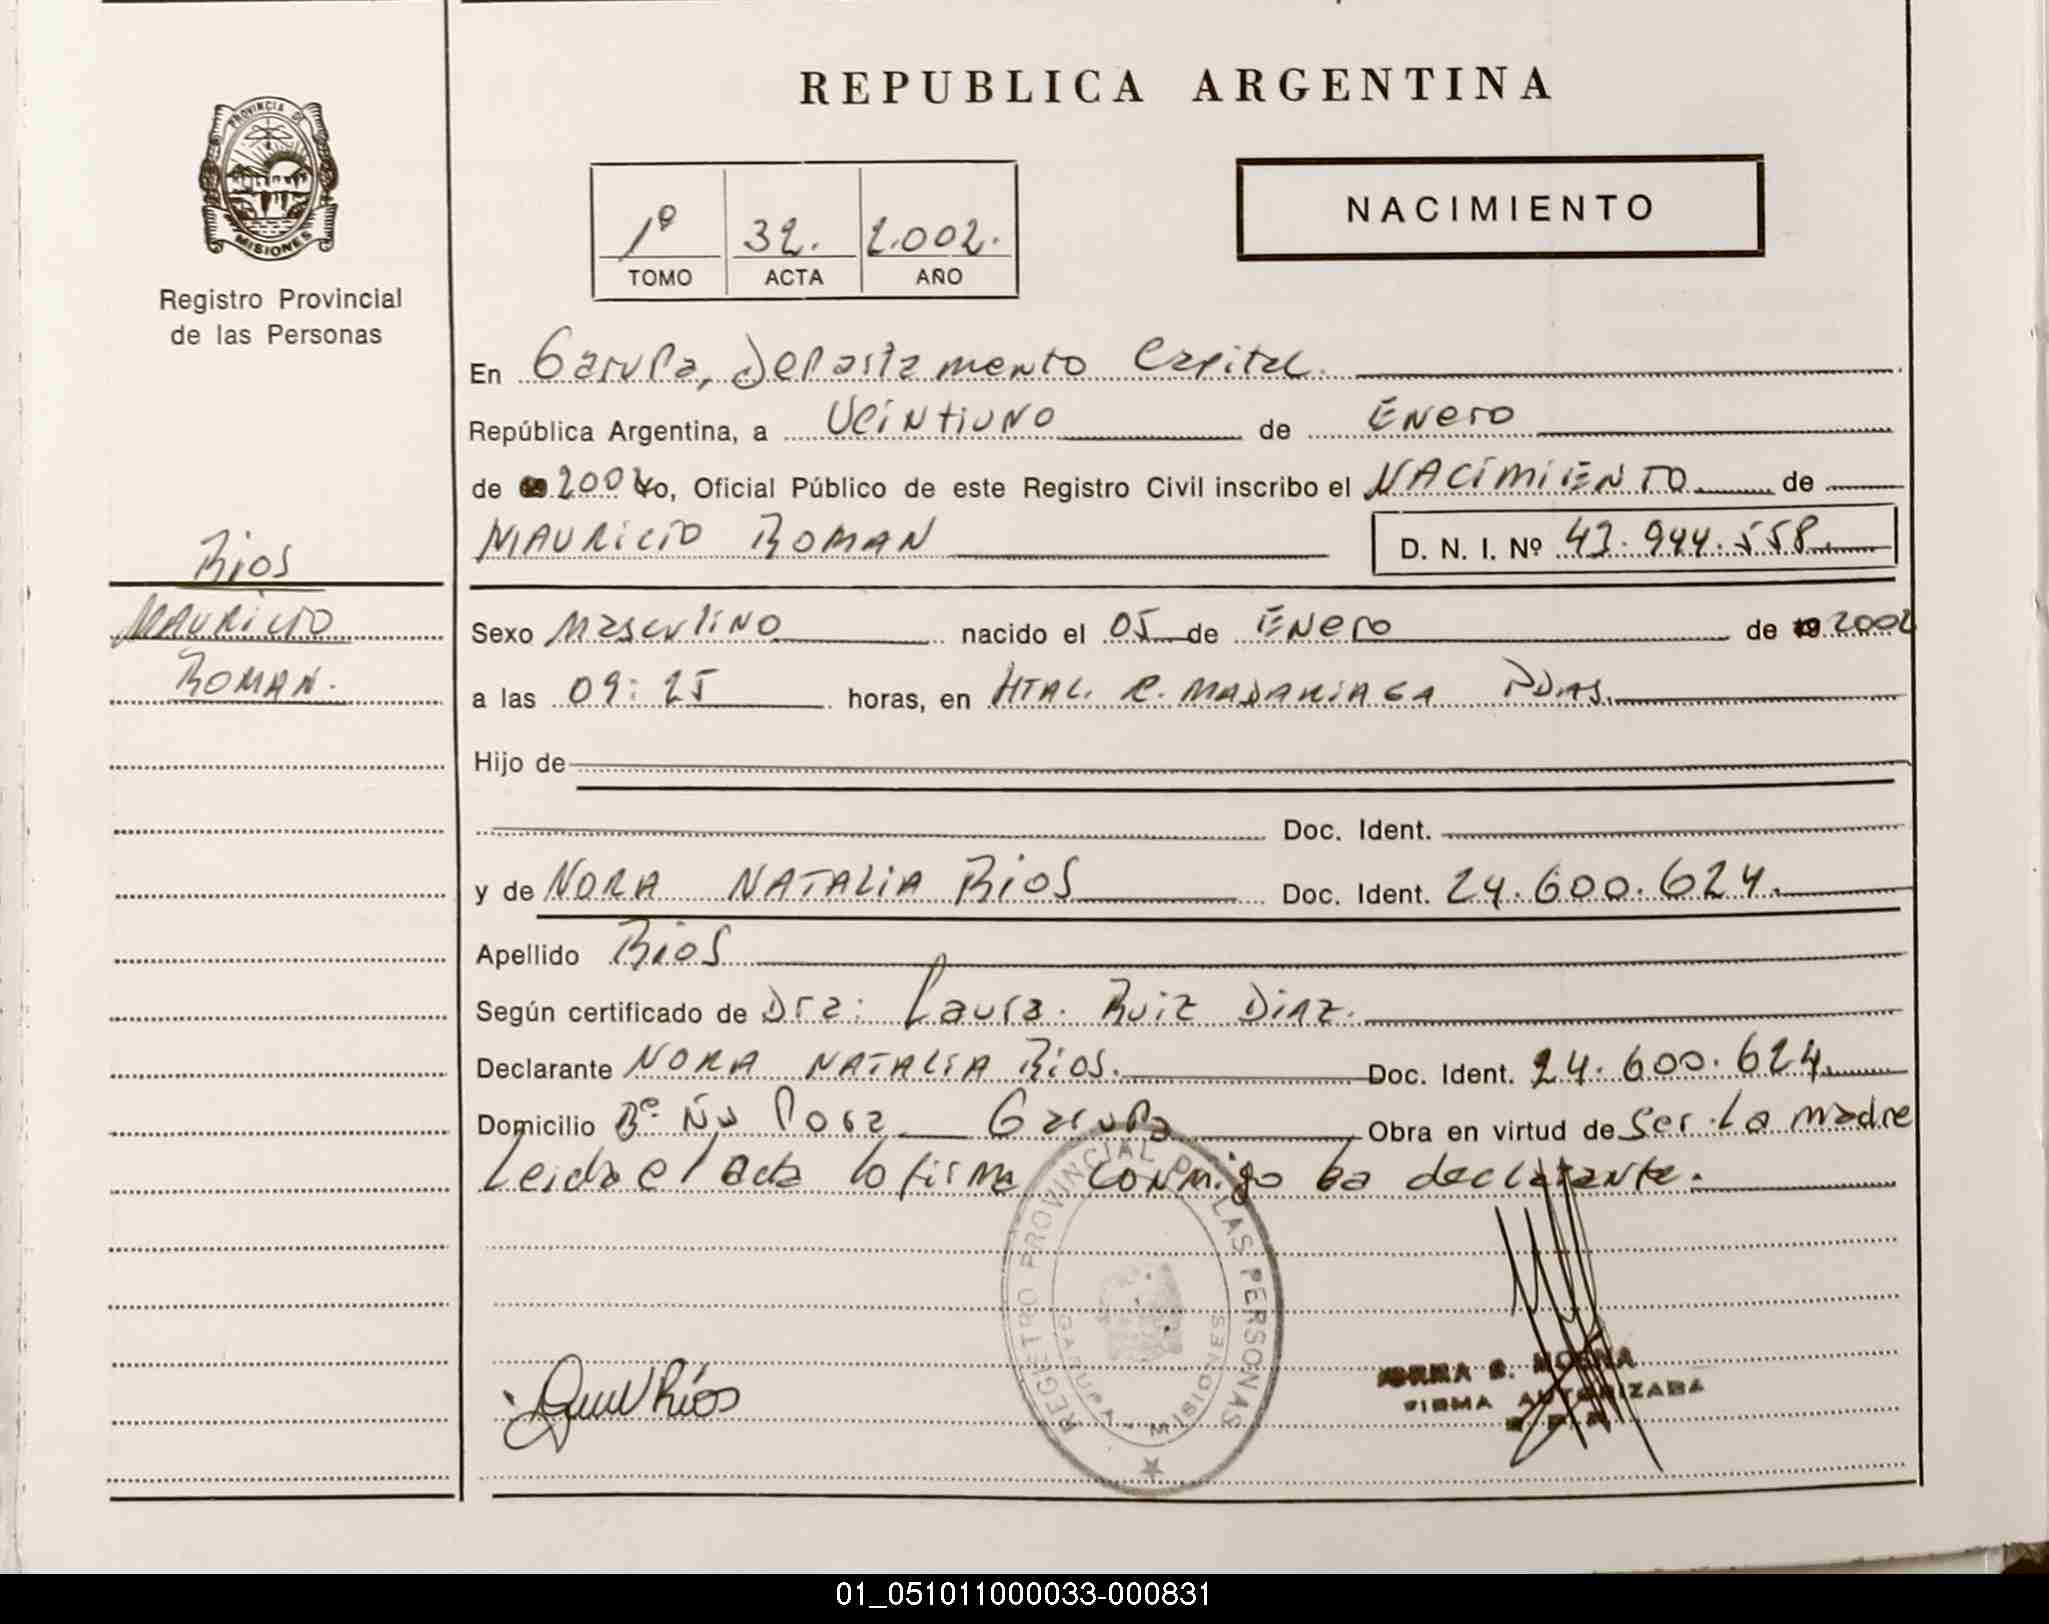 REPUBLICA ARGENTINA
PROVINCIA DE
MISIONES
Registro Provincial
de las Personas
1º 32. 2.002.
TOMO ACTA AÑO
NACIMIENTO
En Garupa, Departamento Capital.
República Argentina, a Veintiuno de Enero
de 2002 Yo, Oficial Público de este Registro Civil inscribo el NACIMIENTO de
MAURICIO ROMAN D. N. I. Nº 43.944.558.
Rios
MAURICIO
ROMAN.
Sexo Masculino nacido el 05 de Enero de 19 2002
a las 09:25 horas, en HTAL. R. MADARIAGA PDAS.
Hijo de
Doc. Ident.
y de NORA NATALIA RIOS Doc. Ident. 24.600.624.
Apellido Rios
Según certificado de Dra: Laura. Ruiz Diaz.
Declarante NORA NATALIA RIOS. Doc. Ident. 24.600.624.
Domicilio Bº Ñu Pora Garupa Obra en virtud de ser La madre
Leida el acta la firma conmigo La declarante.
REGISTRO PROVINCIAL DE LAS PERSONAS
GARUPA - MISIONES
Rios
S. MOSNA
FIRMA AUTORIZADA
01_051011000033-000831